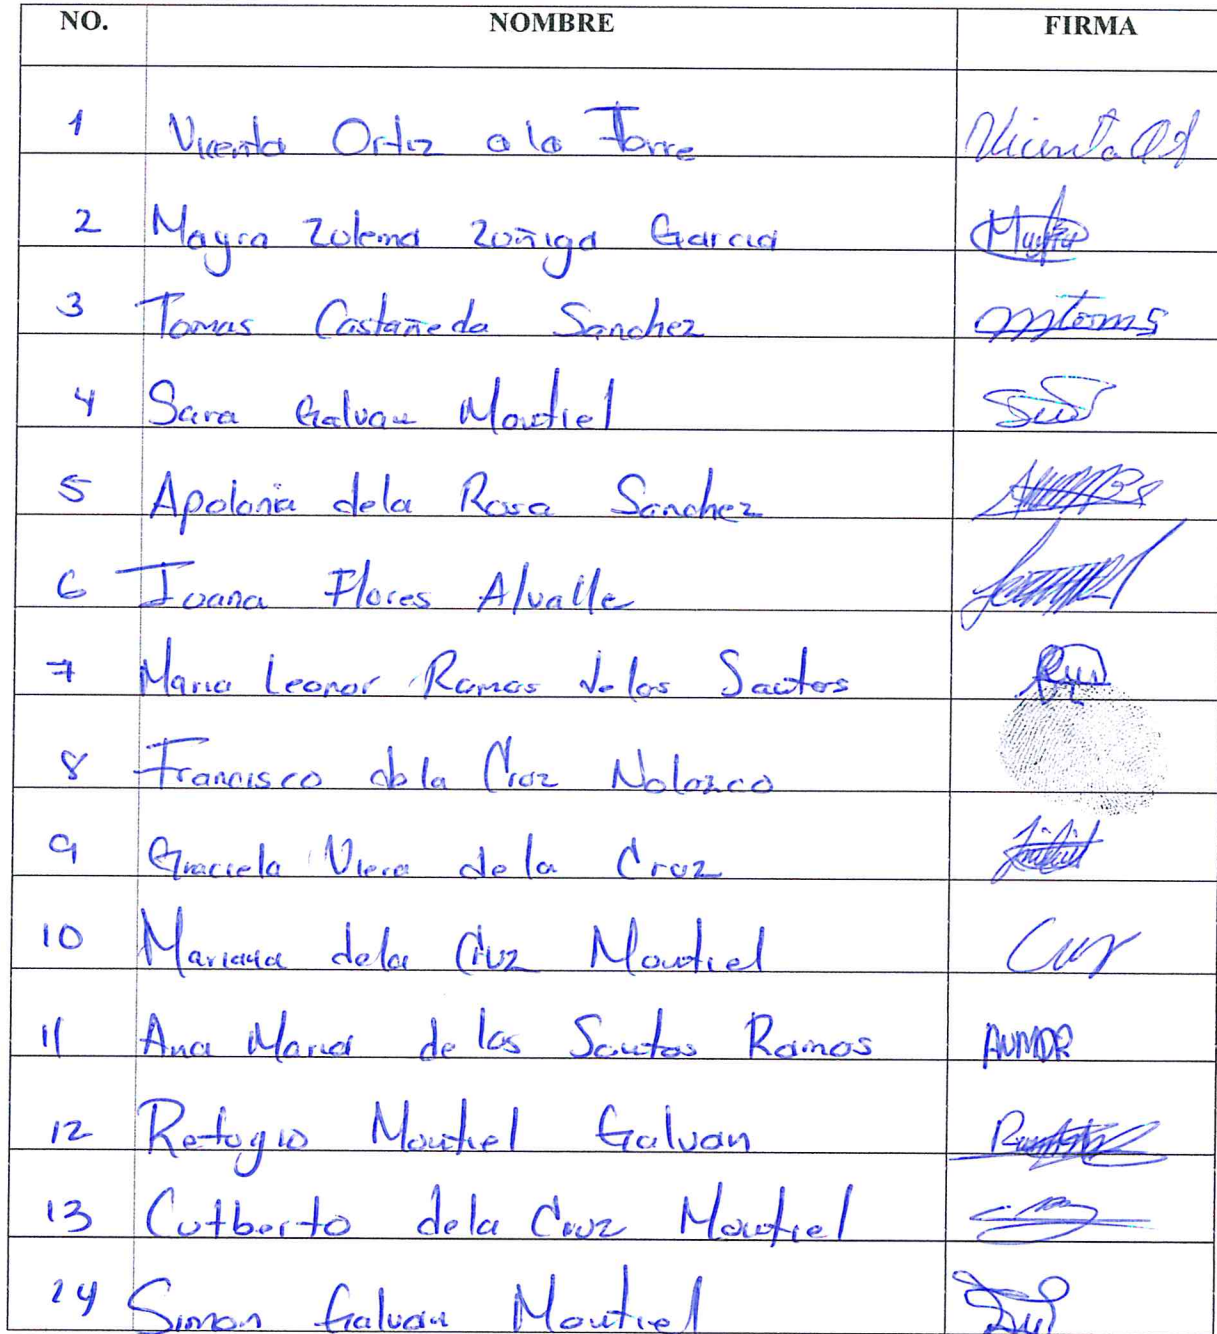 NO. NOMBRE FIRMA
1 Vicenta Ortiz a la Torre Vicenta
2 Mayra Zulema Zuñiga Garcia
3 Tomas Castañeda Sanchez
4 Sara Galvan Montiel
5 Apolonia dela Rosa Sanchez
6 Juana Flores Alvalle
7 Maria Leonor Ramos de los Santos
8 Francisco de la Cruz Nolazco
9 Graciela Viera de la Cruz
10 Mariana dela Cruz Montiel Cruz
11 Ana Maria de los Santos Ramos AUMDR
12 Refugio Montiel Galvan
13 Cutberto dela Cruz Montiel
14 Simon Galvan Montiel